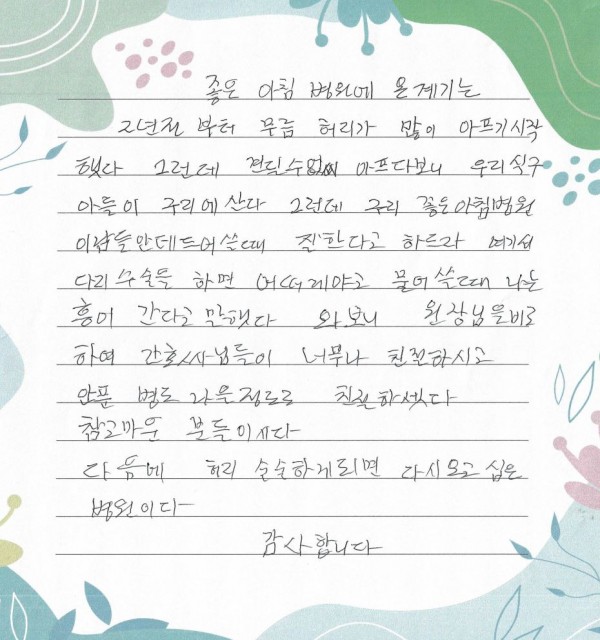 좋은 아침 병원에 온 계기는
2년전 부터 무릅 허리가 많이 아프기시작
했다 그런데 견딜수없이 아프다보니 우리식구
아들이 구리에 산다 그런데 구리 좋은아침병원
질한다고 하드라 여기서
다리수술를 하면 어떠게야고 물어쓸때 나는
흥이 간다고 말했다 와보니 원장님을비로
하여 간호사님들이 너무나 친절하시고
안푼 병도 나을정도로 친절하셌다
참고마운 분들이시다
다음에 허리 술술하게되면 다시오고 십은
병원이다
감사합니다